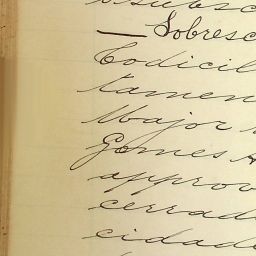 — Sobresc
Codicil
tamen
Major
Gomes A
approv
cerrad
cidad